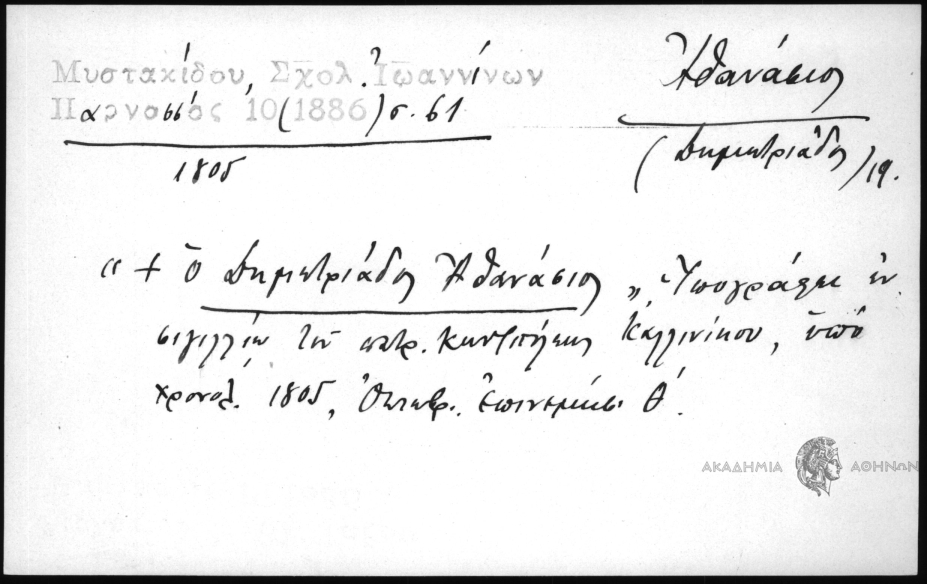 Μυστακίδου, Σχολ. Ἰωαννίνων
Παρνασσός 10(1886)σ. 61
1805
Ἀθανάσιος
(Δημητριάδος) 19.
"+ ὁ Δημητριάδος Ἀθανάσιος" Ὑπογράφει ἐν
σιγιλλίῳ τοῦ πατρ. Κωνστ/πόλεως Καλλινίκου, ὑπό
χρονολ. 1805, Ὀκτωβρ. Ἐπινεμήσ. Θ΄.
ΑΚΑΔΗΜΙΑ ΑΘΗΝΩΝ